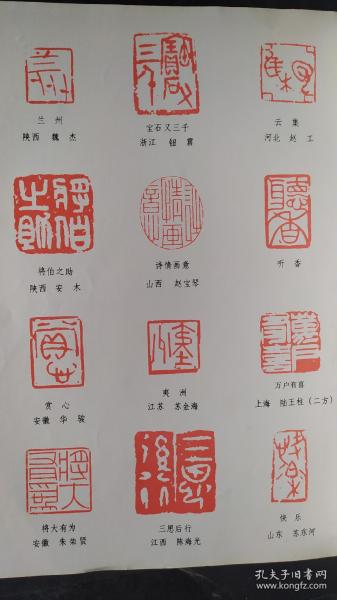 兰州
陕西 魏杰
宝石又三千
浙江 钮霖
云集
河北 赵工
将伯之助
陕西 安木
诗情画意
山西 赵宝琴
听香
赏心
安徽 华骏
夷洲
江苏 苏金海
万户有喜
上海 陆王柱(二方)
将大有为
安徽 朱荣贤
三思后行
江西 陈海光
快乐
山东 苏东河
孔夫子旧书网
www.kongfz.com